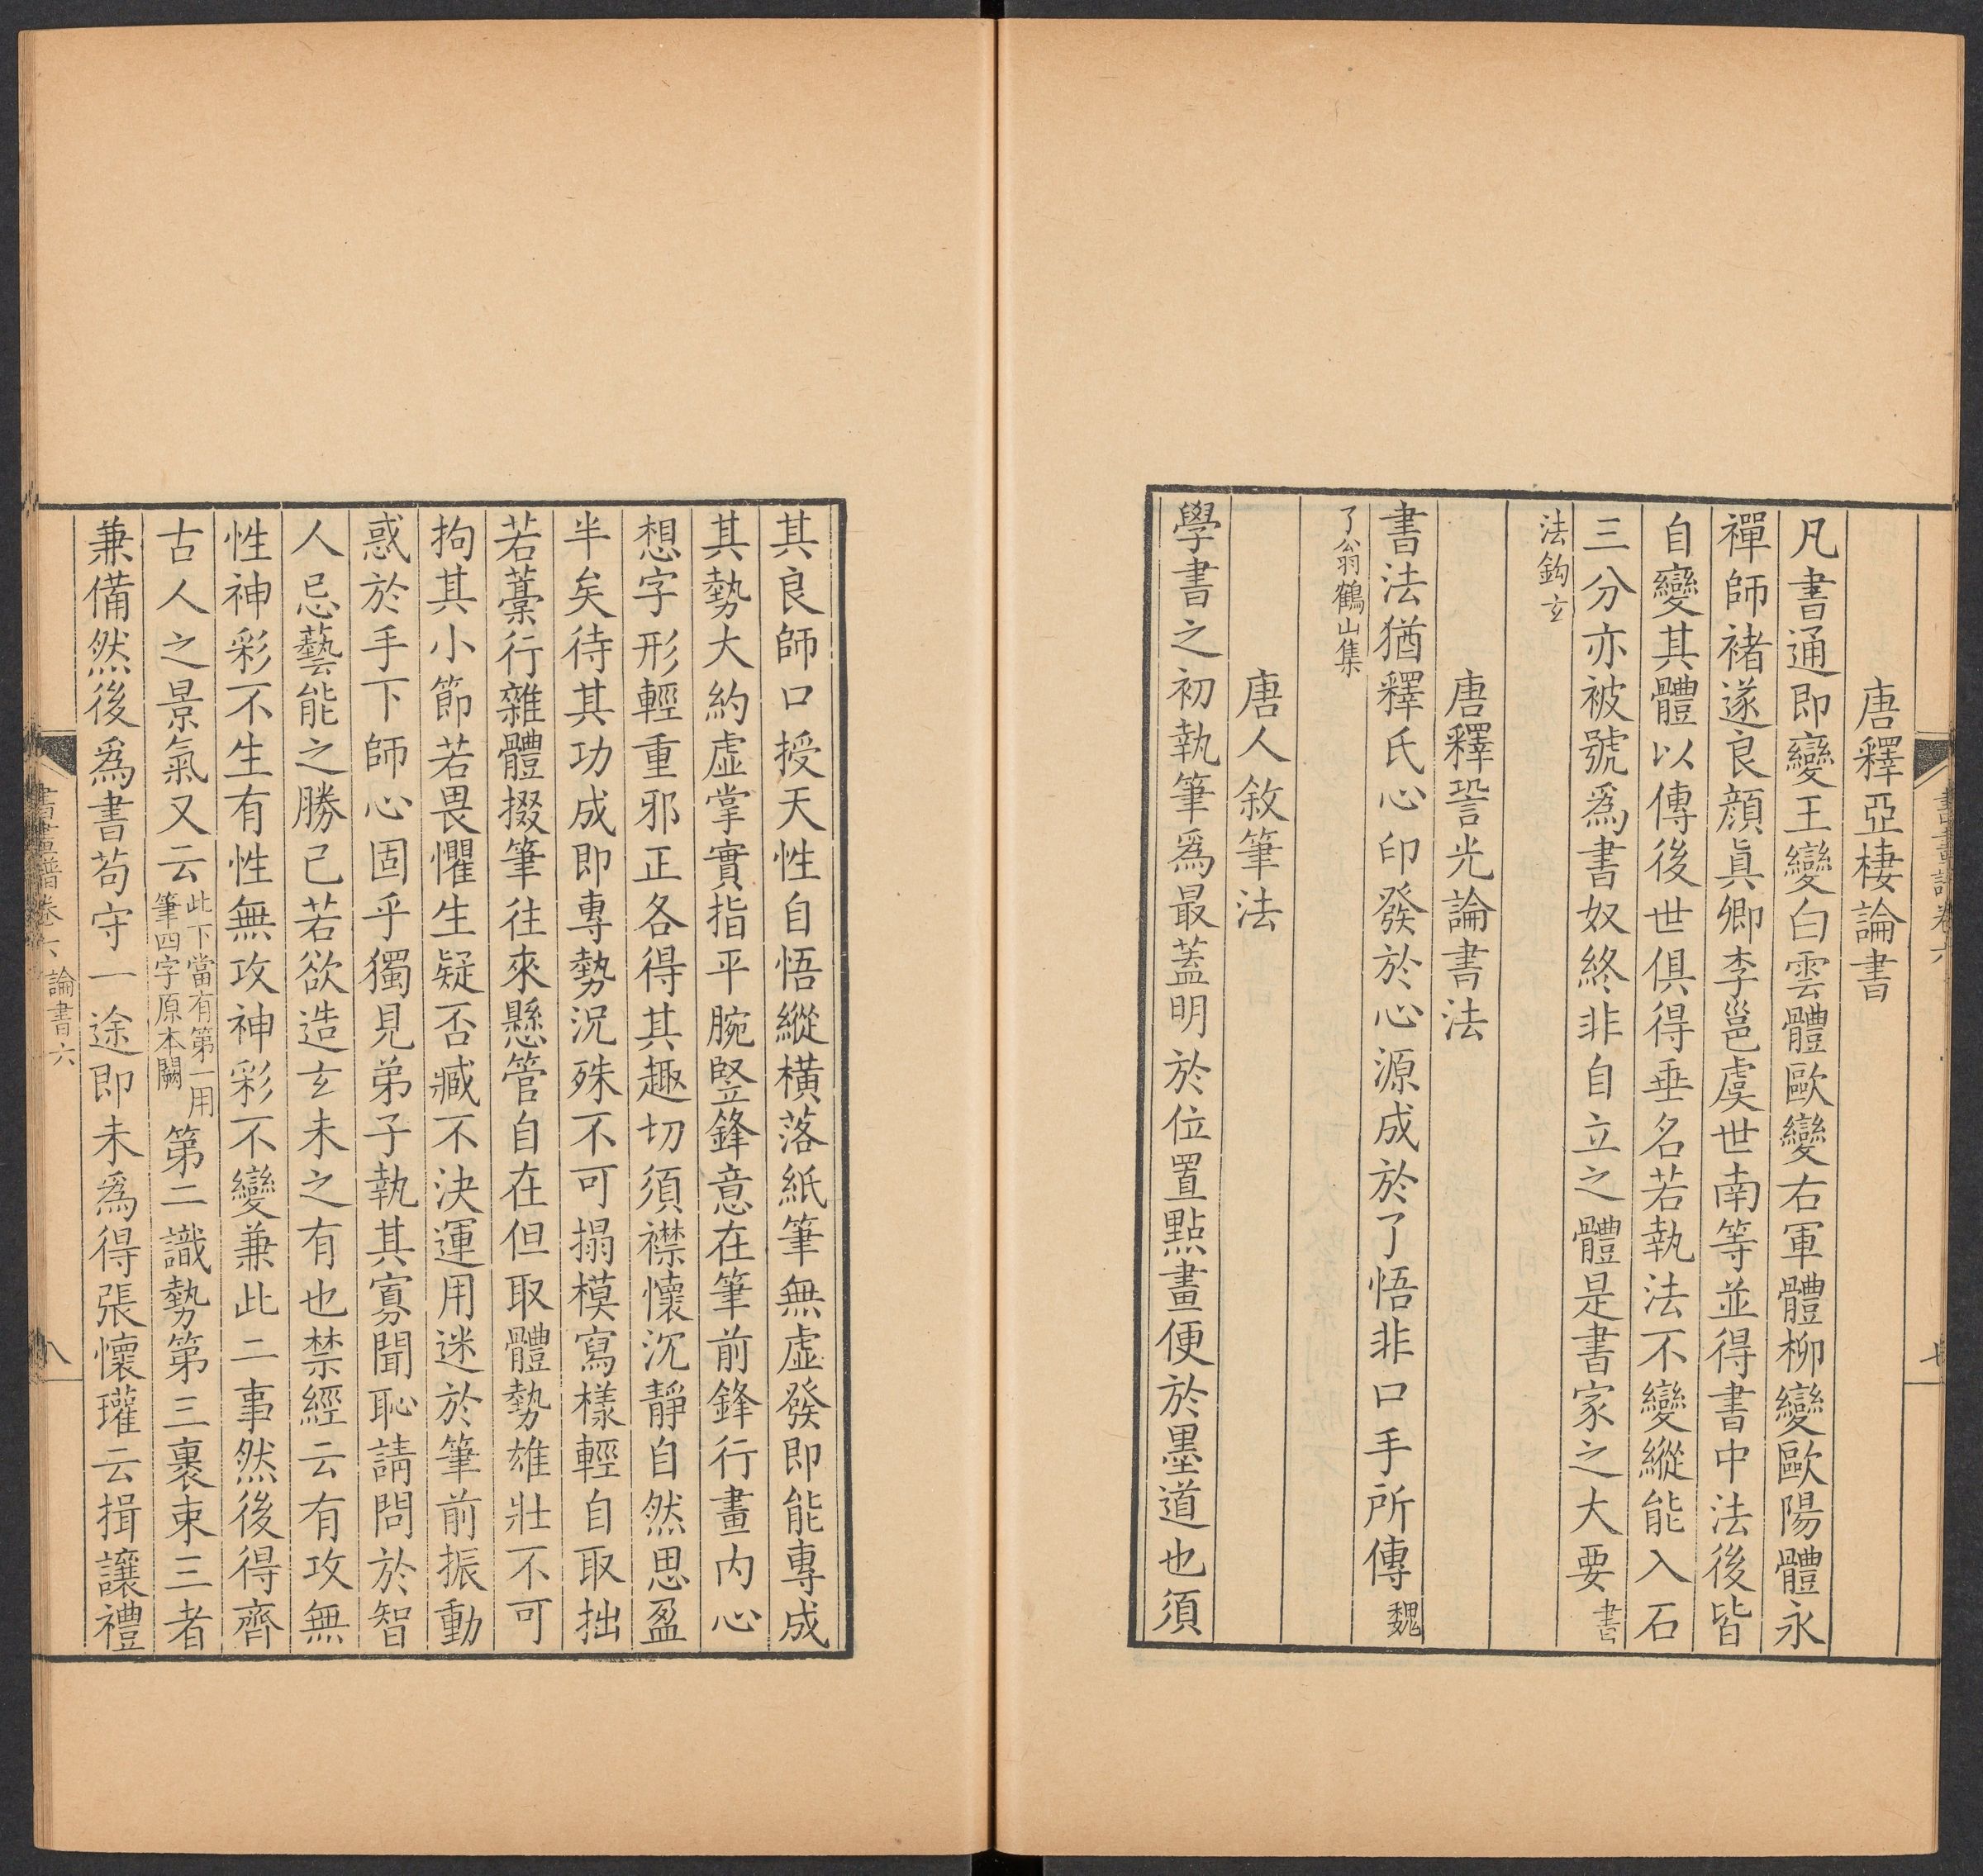 唐釋亞棲論書
凡書通即變王變白雲體歐變右軍體柳變歐陽體永
禪師褚遂良顏眞卿李邕虞世南等並得書中法後皆
自變其體以傳後世俱得垂名若執法不變縱能入石
三分亦被號爲書奴終非自立之體是書家之大要書
法鈎玄
唐釋䛒光論書法
書法猶釋氏心印發於心源成於了悟非口手所傳魏
了翁鶴山集
唐人敘筆法
學書之初執筆爲最蓋明於位置點畫便於墨道也須
其良師口授天性自悟縱橫落紙筆無虛發即能專成
其勢大約虛掌實指平腕竪鋒意在筆前鋒行畫内心
想字形輕重邪正各得其趣切須襟懷沉靜自然思盈
半矣待其功成即專勢況殊不可搨模寫樣輕自取拙
若藁行雜體掇筆往來懸管自在但取體勢雄壯不可
拘其小節若畏懼生疑否臧不決運用迷於筆前振動
惑於手下師心固乎獨見弟子執其寡聞恥請問於智
人忌藝能之勝己若欲造玄未之有也禁經云有攻無
性神彩不生有性無攻神彩不變兼此二事然後得齊
古人之景氣又云此下當有第一用筆四字原本闕第二識勢第三裹束三者
兼備然後爲書苟守一途即未爲得張懷瓘云揖讓禮
書畫譜卷六 論書六
八